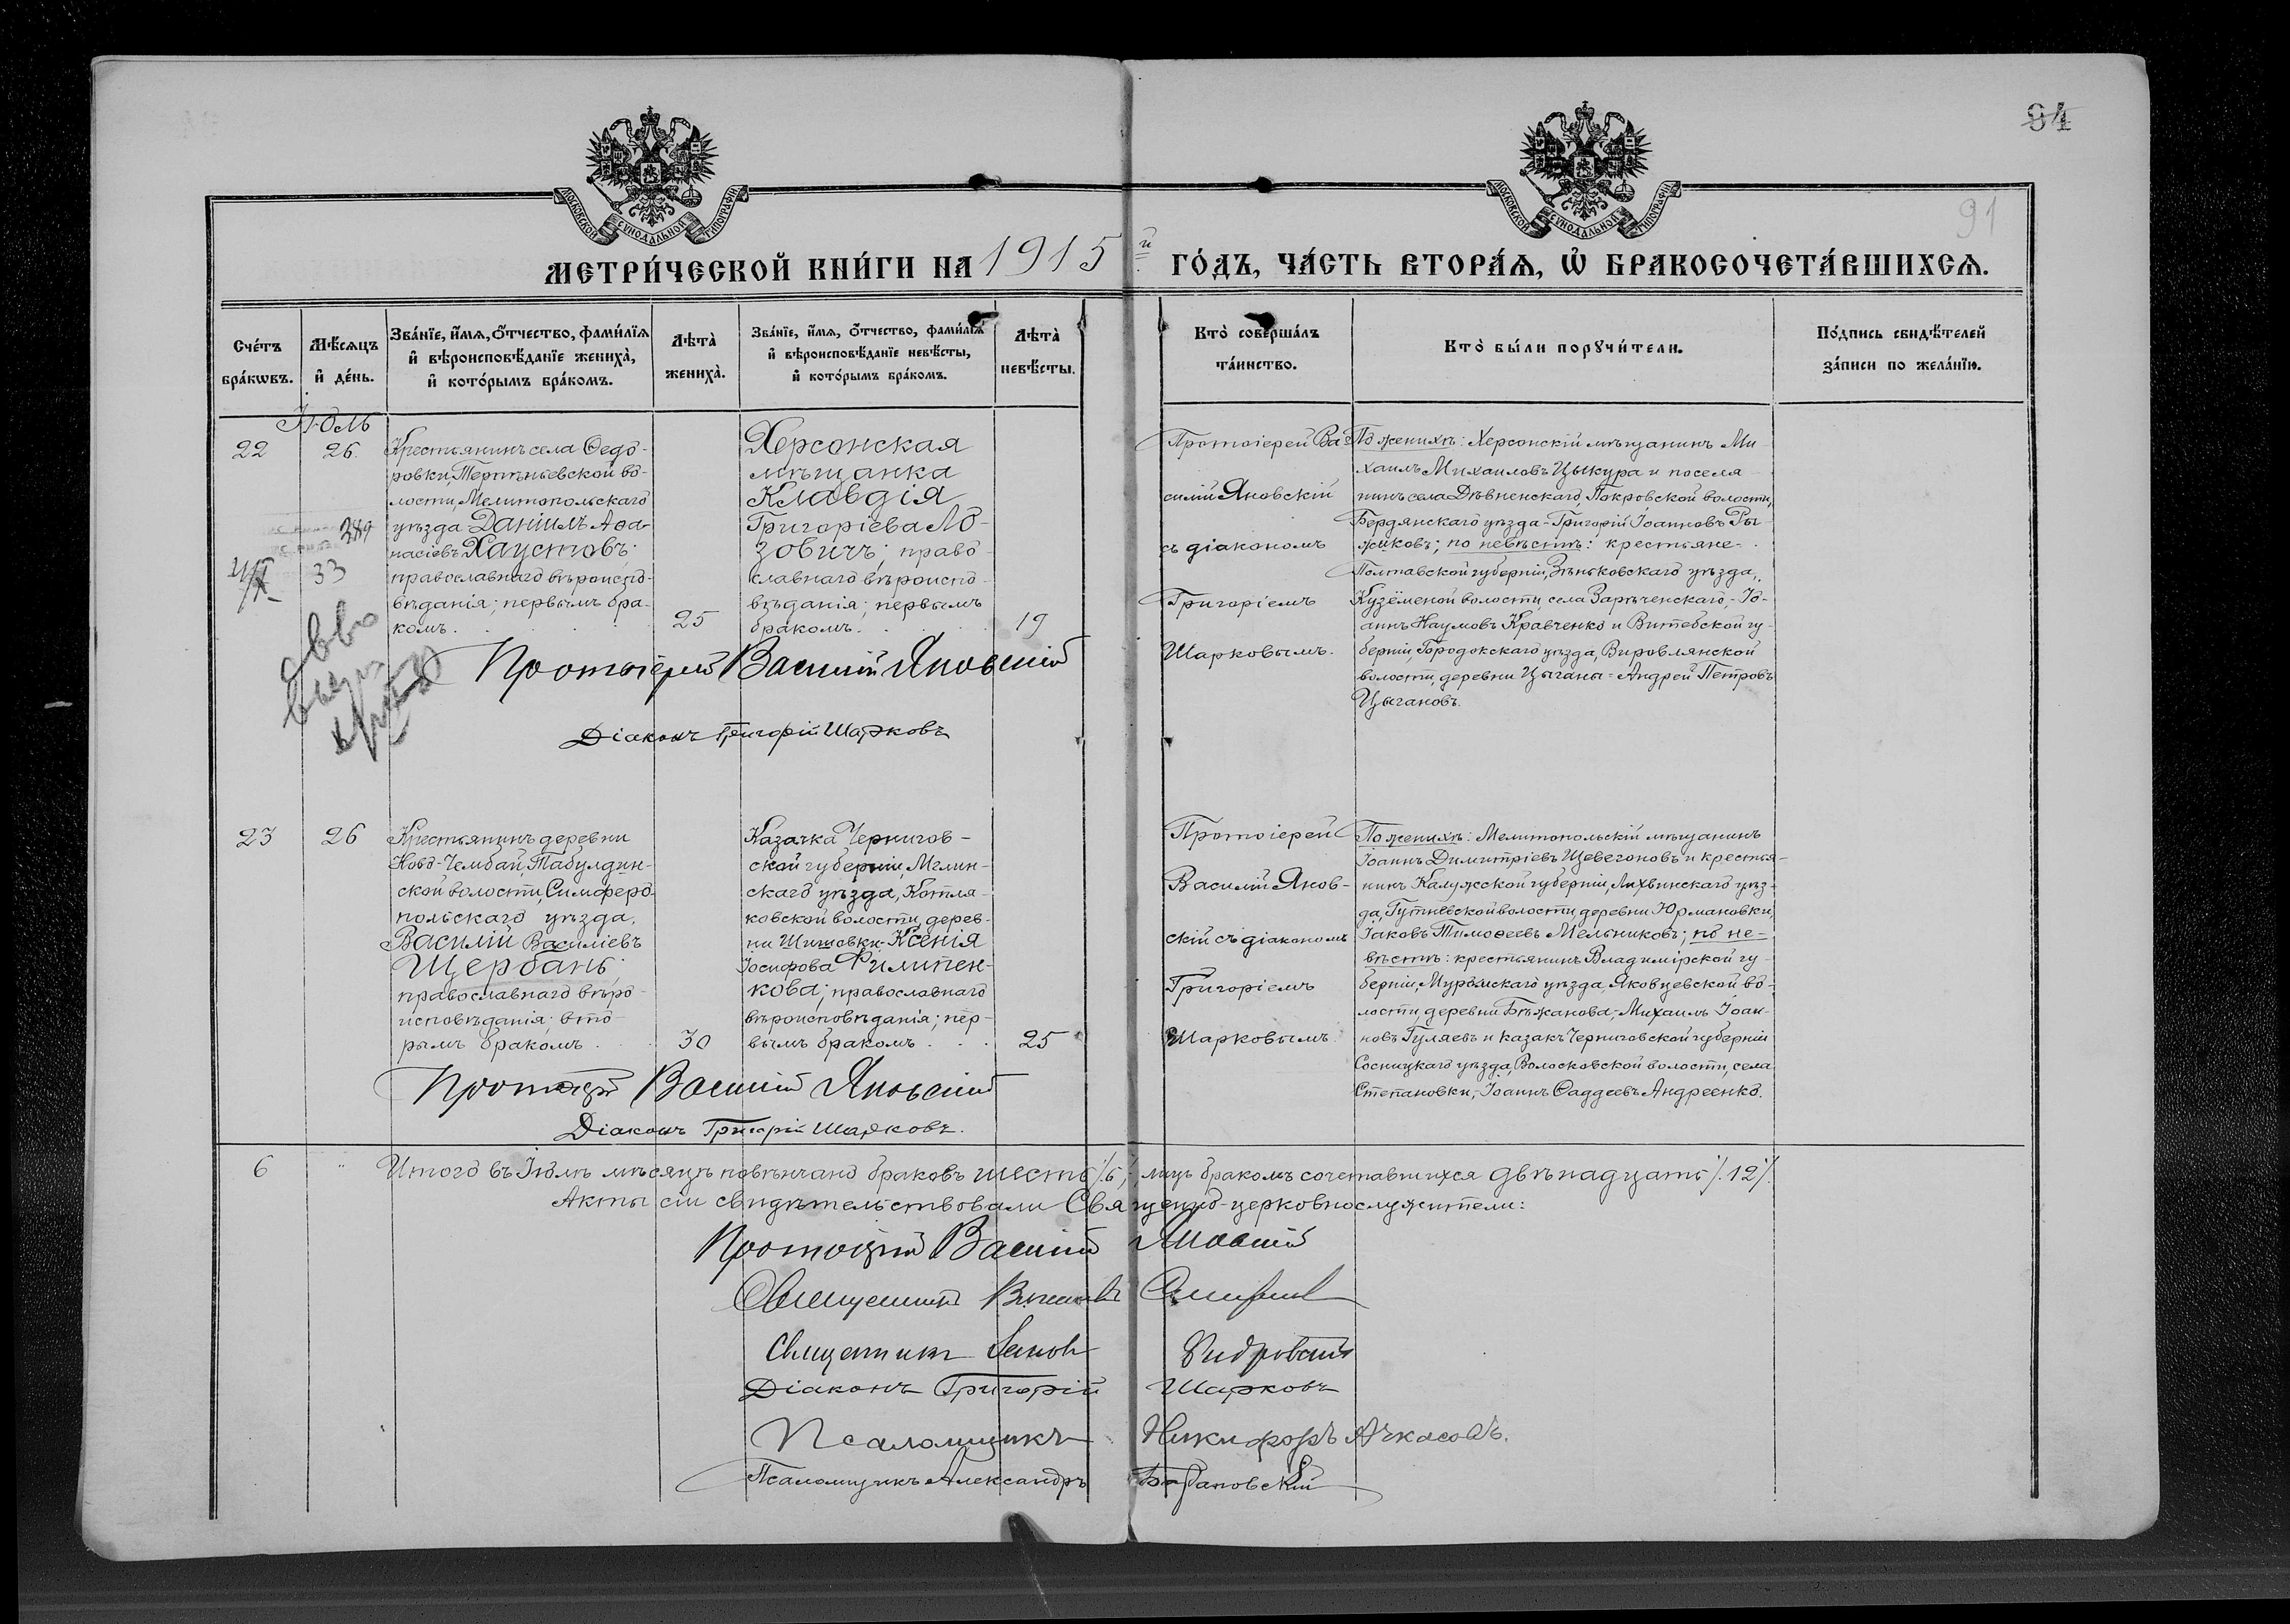 84
91
МОСКОВСКОЙ СУНОДАЛЬНОЙ ТИПОГРАФІИ
МОСКОВСКОЙ СУНОДАЛЬНОЙ ТИПОГРАФІИ
МЕТРИ́ЧЕСКОЙ КНИ́ГИ НА 1915й ГО́ДЪ, ЧА́СТЬ ВТОРА́Я, Ѡ БРАКОСОЧЕТА́ВШИХСЯ.
Сче́тъ бра́кѡвъ.
Мѣ́сяцъ и де́нь.
Зва́нїе, и́мя, о́тчество, фами́лїя и вѣроисповѣ́данїе жениха̀, и кото́рымъ бра́комъ.
Лѣта̀ жениха̀.
Зва́нїе, и́мя, о́тчество, фами́лїя и вѣроисповѣ́данїе невѣ́сты, и кото́рымъ бра́комъ.
Лѣта̀ невѣ́сты.
Кто̀ соверша́лъ та́инство.
Кто̀ бы́ли порꙋчи́тели.
По́дпись свидѣ́телей за́писи по жела́нїю.
Іюль
22
26.
Крестьянинъ села Ѳедо-
ровки, Терпѣньевской во-
лости, Мелитопольскаго
уѣзда Даніилъ Аѳа-
насіевъ Хаустовъ;
православнаго вѣроиспо-
вѣданія; первымъ бра-
комъ.
25
289
33
Херсонская
мѣщанка
Клавдія
Григоріева Ло-
зовичъ; право-
славнаго вѣроиспо-
вѣданія; первымъ
бракомъ.
19
Протоіерей Ва-
силій Яновскій
съ діакономъ
Григоріемъ
Шарковымъ.
По женихѣ: Херсонскій мѣщанинъ Ми-
хаилъ Михаиловъ Цыкура и поселя-
нинъ села Дѣвненскаго, Покровской волости,
Бердянскаго уѣзда - Григорій Іоанновъ Ры-
жиковъ; по невѣстѣ: крестьяне-
Полтавской губерніи, Зѣньковскаго уѣзда,
Куземеной волости, села Зарѣченскаго, - Іо-
аннъ Наумовъ Кравченко и Витебской гу-
берніи, Городокскаго уѣзда, Вировлянской
волости, деревни Цыганы - Андрей Петровъ
Цыгановъ.
Протоіерей Василій Яновскій
Діаконъ Григорій Шарковъ
23
26
Крестьянинъ деревни
Ново-Чембай, Табулдин-
ской волости, Симферо-
польскаго уѣзда,
Василій Василіевъ
Щербань;
православнаго вѣро-
исповѣданія; вто-
рымъ бракомъ
30
Казачка Чернигов-
ской губерніи, Мглин-
скаго уѣзда, Котля-
ковской волости, дерев-
ни Шишовки - Ксенія
Іосифова Филипен-
кова; православнаго
вѣроисповѣданія; пер-
вымъ бракомъ
25
Протоіерей
Василій Янов-
скій съ діакономъ
Григоріемъ
Шарковымъ
По женихѣ: Мелитопольскій мѣщанинъ
Іоаннъ Димитріевъ Щевегоновъ и крестья-
нинъ Калужской губерніи, Лихвинскаго уѣз-
да, Гутневской волости, деревни Юрмановки,
Іаковъ Тимоѳеевъ Мельниковъ; по не-
вѣстѣ: крестьянинъ Владимірской гу-
берніи, Муромскаго уѣзда, Яковцевской во-
лости, деревни Бѣжанова, - Михаилъ Іоан-
новъ Гуляевъ и казакъ Черниговской губерніи
Сосницкаго уѣзда, Волосковской волости, села
Степановки, - Іоаннъ Ѳаддеевъ Андреенко.
Протоіерей Василій Яновскій
Діаконъ Григорій Шарковъ.
6
Итого въ Іюлѣ мѣсяцѣ повѣнчано браковъ шесть /.6./, лицъ бракомъ сочетавшихся двѣнадцать /.12./.
Акты сіи свидѣтельствовали Священно-церковнослужители:
Протоіерей Василій Яновскій
Священникъ
Священникъ
Діаконъ Григорій Шарковъ
Псаломщикъ Никифоръ Ачкасовъ.
Псаломщикъ Александръ Барановскій